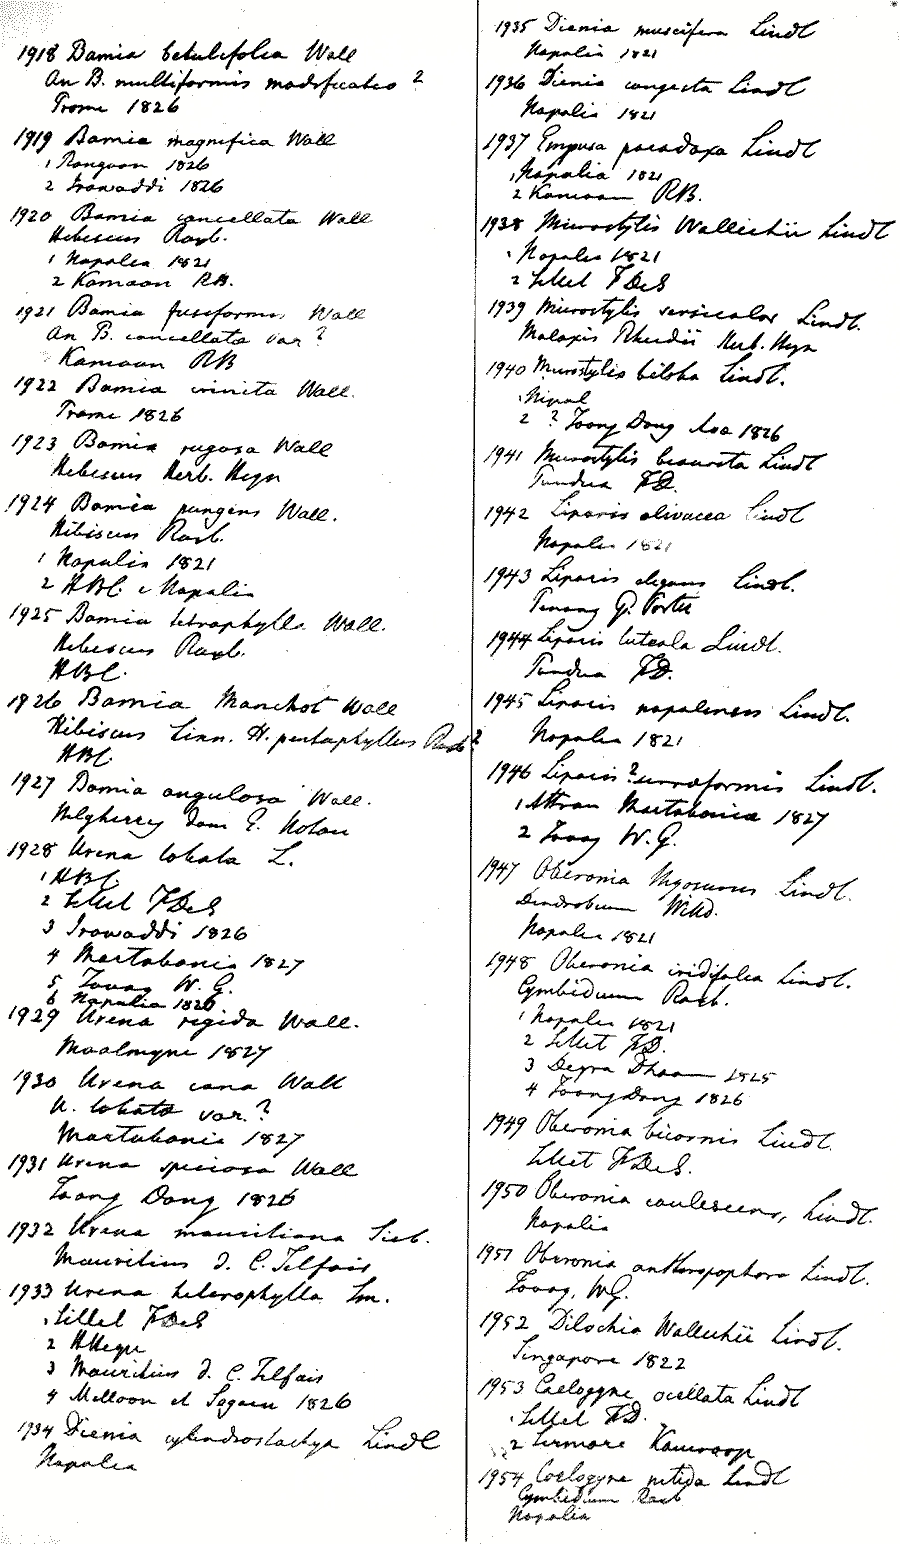 1918 Bamia betulifolia Wall
An B. multiformis modificatio ?
Prome 1826
1919 Bamia magnifica Wall
1 Rangoon 1826
2 Irawaddi 1826
1920 Bamia cancellata Wall
Hibiscus Roxb.
1 Napalia 1821
2 Kamaon RB.
1921 Bamia fusiformis Wall
An B. cancellata var ?
Kamaon RB
1922 Bamia crinita Wall.
Prome 1826
1923 Bamia rugosa Wall
Hibiscus Herb. Heyn
1924 Bamia pungens Wall.
Hibiscus Roxb.
1 Napalia 1821
2 HBC. e Napalia
1925 Bamia tetraphylla Wall.
Hibiscus Roxb.
HBC.
1926 Bamia Manihot Wall
Hibiscus Linn. H. pentaphyllus Roxb ?
HBC.
1927 Bamia angulosa Wall.
Nilgherry dom E. Noton
1928 Urena lobata L.
1 HBC.
2 Sillet FDeS
3 Irawaddi 1826
4 Martabania 1827
5 Tavoy W. G.
6 Napalia 1820
1929 Urena rigida Wall.
Moalmyne 1827
1930 Urena cana Wall
U. lobata var. ?
Martabania 1827
1931 Urena speciosa Wall
Toong Dong 1826
1932 Urena mauritiana Sieb.
Mauritius d. C. Telfair
1933 Urena heterophylla Sm.
1 Sillet FDeS
2 HHeyn
3 Mauritius d. C. Telfair
4 Melloon et Segaen 1826
1934 Dienia cylindrostachya Lindl
Napalia
1935 Dienia muscifera Lindl
Napalia 1821
1936 Dienia congesta Lindl
Napalia 1821
1937 Empusa paradoxa Lindl
1 Napalia 1821
2 Kamaon RB.
1938 Microstylis Wallichii Lindl
1 Napalia 1821
2 Sillet FDeS
1939 Microstylis versicolor Lindl.
Malaxis Rheedii Herb. Heyn
1940 Microstylis biloba Lindl.
1 Nipal
2 ? Toong Dong Ava 1826
1941 Microstylis biaurita Lindl
Pundua FD.
1942 Liparis olivacea Lindl
Napalia 1821
1943 Liparis elegans Lindl.
Penang G. Porter
1944 Liparis luteola Lindl.
Pundua FD.
1945 Liparis napalensis Lindl.
Napalia 1821
1946 Liparis ? Lindl.
1 Attran Martabania 1827
2 Tavoy W. G.
1947 Oberonia Myosurus Lindl.
Dendrobium Willd.
Napalia 1821
1948 Oberonia iridifolia Lindl.
Cymbidium Roxb.
1 Napalia 1821
2 Sillet FD.
3 Deyra Dhoon 1825
4 Toong Dong 1826
1949 Oberonia bicornis Lindl.
Sillet FDeS.
1950 Oberonia caulescens, Lindl.
Napalia
1951 Oberonia anthropophora Lindl.
Tavoy, WG.
1952 Dilochia Wallichii Lindl.
Singapore 1822
1953 Coelogyne ocellata Lindl
1 Sillet FD.
2 Sirmore Kamroop
1954 Coelogyne nitida Lindl
Cymbidium Roxb
Napalia